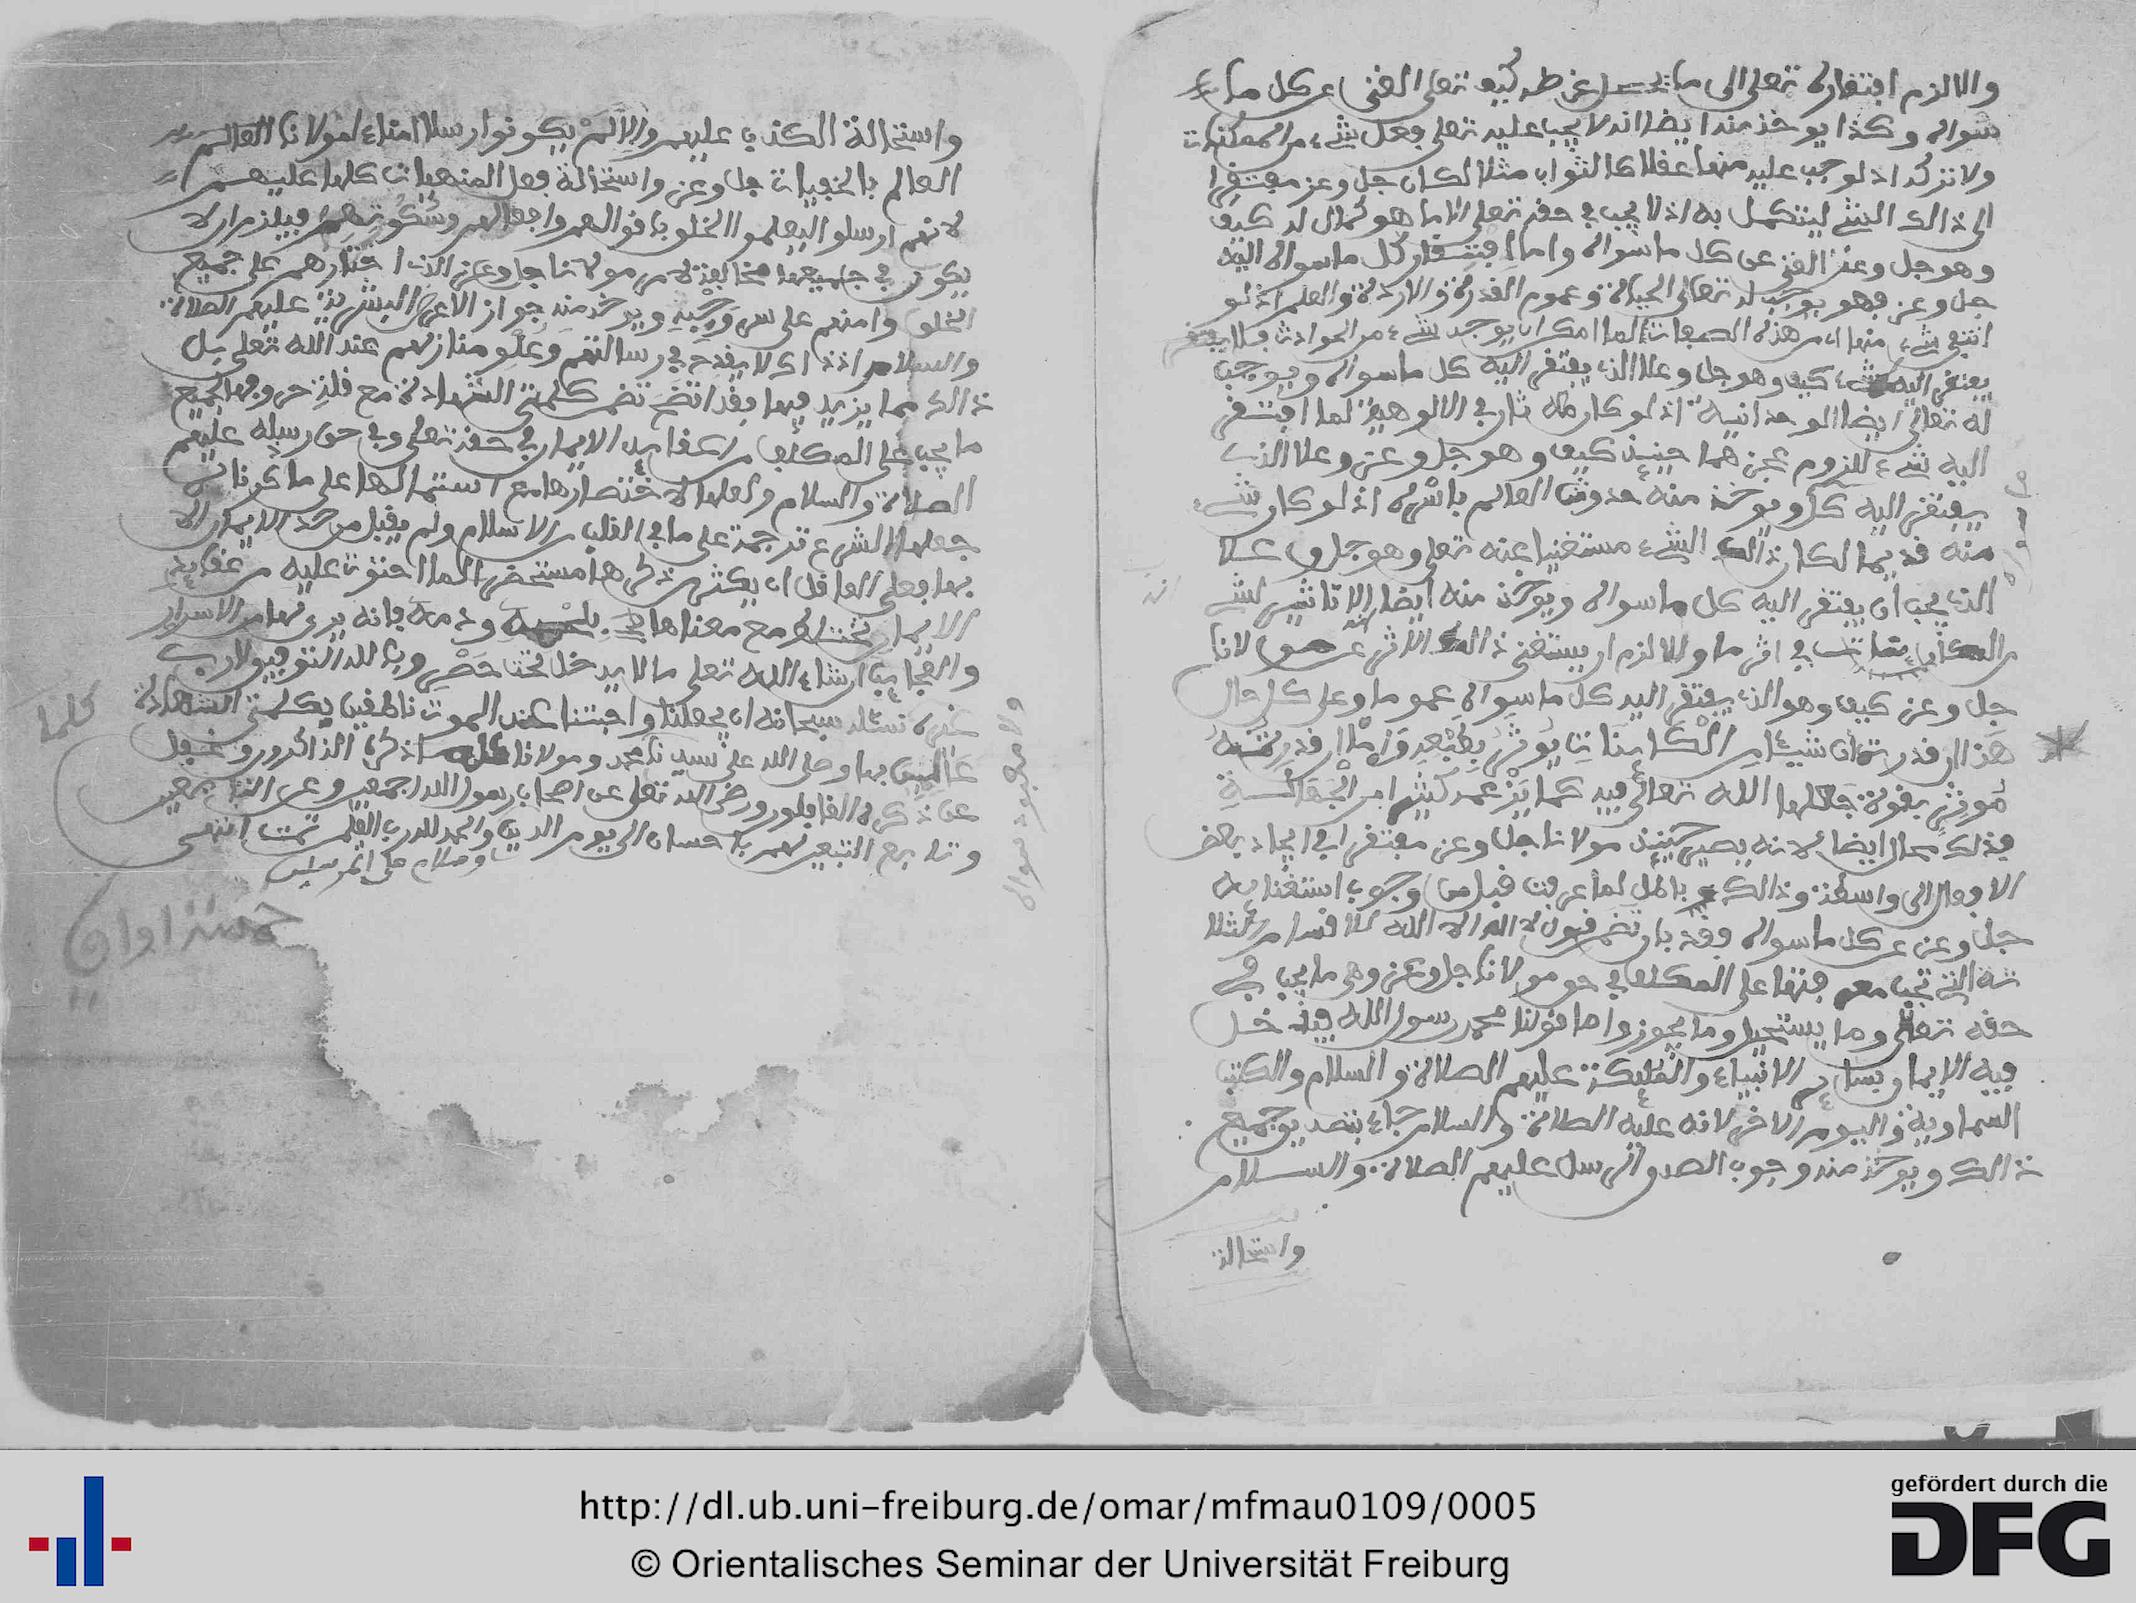 والا لزم افتقاره تعلى الى ما يحصل غرضه كيف تعلى الغنى عن كل ما
سواه وكذا يوخذ منه ايضا انه لا يجب عليه تعلى فعل شيء من الممكنات
ولا تركه اذ لو وجب عليه منها عقلا كالثواب مثلا لكان جل وعز مفتقرا
الى ذالك الشيء ليتكمل به اذ لا يجب في حقه تعلى الا ما هو كمال له كيف
وهو جل وعز الغنى عن كل ما سواه واما افتقار كل ما سواه اليه
جل وعز فهو يوجب له تعالى الحياة وعموم القدرة والارادة والعلم اذ لو
انتفى شيء منها اي من هذه الصفات لما امكن ان يوجد شيء من الحوادث فلا يفتقر
يفتقر اليه شيء كيف وهو جل وعلا الذي يفتقر اليه كل ما سواه ويوجب
له تعالى ايضا الوحدانية اذ لو كان معه ثان في الالوهية لما افتقر
اليه شيء للزوم عجزهما حينئذ كيف وهو جل وعز وعلا الذي
يفتقر اليه كل ويوخذ منه حدوث العالم باسره اذ لو كان شيء
منه قديما لكان ذالك الشيء مستغنيا عنه تعلى وهو جل وعلا
الذي يجب ان يفتقر اليه كل ما سواه ويوخذ منه ايضا الا تاثير لشيء
من الكائنات في اثر ما والا لزم ان يستغنى ذالك الاثر عن مولانا
جل وعز كيف وهو الذي يفتقر اليه كل ما سواه عموما وعلى كل حال
هذا ان قدرت ان شيئا من الكاينات يوثر بطبعه واما ان قدرته
موثر بقوة جعلها الله تعالى فيه كما يزعمه كثير من الجهلة
فذلك محال ايضا لانه يصير حينئذ مولانا جل وعز مفتقرا في ايجاد بعض
الافعال الى واسطة وذالك باطل لما عرفت قبل من وجوب استغنايه
جل وعز عن كل ما سواه فقد بان تضمن قول لا اله الا الله للاقسام الثلا
ثة التي تجب معرفتها على المكلف في حق مولانا جل وعز وهي ما يجب في
حقه تعالى وما يستحيل وما يجوز واما قولنا محمد رسول الله فيدخل
فيه الايمان بسائر الانبياء والملئكة عليهم الصلاة والسلام والكتب
السماوية واليوم الاخر لانه عليه الصلاة والسلام جاء بتصديق جميع
ذالك ويوخذ منه وجوب الصدق الرسل عليهم الصلاة والسلام
واستحالة
واستحالة الكذب عليهم والا لم يكونوا رسلا امناء لمولانا العالم
العالم بالخفيات جل وعز واستحالة فعل المنهيات كلها عليهم
لانهم ارسلوا ليعلموا الخلق باقوالهم وافعالهم وسكوتهم فيلزم ان لا
يكون في جميعها مخالفة لامر مولانا جل وعز الذي اختارهم على جميع
الخلق وامنهم على سر وحيه ويوخذ منه جواز الاعراض البشرية عليهم الصلاة
والسلام اذ ذاك لا يقدح في رسالتهم وعلو منازلهم عند الله تعلى بل
ذالك مما يزيد فيها فقد اتضح تضمن كلمتي الشهادة مع قلة حروفها لجميع
ما يجب على المكلف من عقايد الايمان في حقه تعلى وفي حق رسله عليهم
الصلاة والسلام ولعلها لاختصارها مع اشتمالها على ما ذكرناه
جعلها الشرع ترجمة على ما في القلب من الاسلام ولم يقبل من احد الايمان الا
بها فعلى العاقل ان يكثر من ذكرها مستحضرا لما احتوت عليه من عقايد
الايمان حتى تمتزج مع معناها بلحمه ودمه فانه يرى لها من الاسرار
والعجايب ان شاء الله تعلى ما لا يدخل تحت حصر وبالله التوفيق لا رب
غيره نسئله سبحانه ان يجعلنا واحبتنا عند الموت ناطقين بكلمتي الشهادة
عالمين بها وصلى الله على سيدنا محمد ومولانا كلما ذكره الذاكرون وغفل
عن ذكره الغافلون ورضي الله تعلى عن اصحاب رسول الله اجمعين وعن التابعين
وتابع التبعين لهم باحسان الى يوم الدين والحمد لله رب العلمين تمت انتهى
وسلام على المرسلين
كلما
ولا معبود سواه
http://dl.ub.uni-freiburg.de/omar/mfmau0109/0005
© Orientalisches Seminar der Universität Freiburg
gefördert durch die
DFG